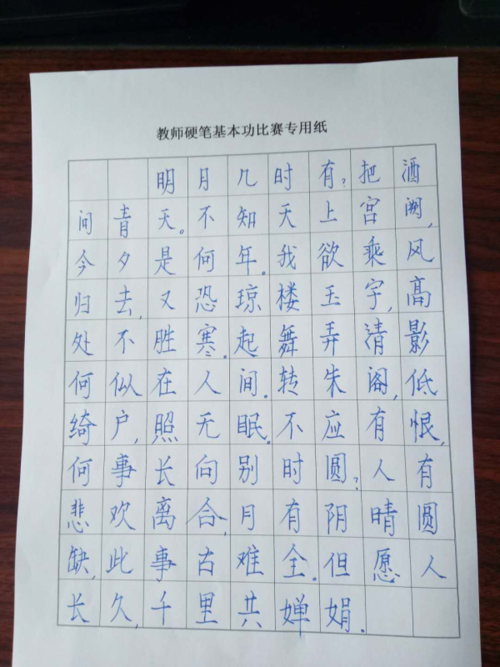 教师硬笔基本功比赛专用纸
明月几时有?把酒
问青天。不知天上宫阙,
今夕是何年。我欲乘风
归去,又恐琼楼玉宇,高
处不胜寒。起舞弄清影
何似在人间。转朱阁,低
绮户,照无眠。不应有恨,
何事长向别时圆?人有
悲欢离合,月有阴晴圆
缺,此事古难全。但愿人
长久,千里共婵娟.